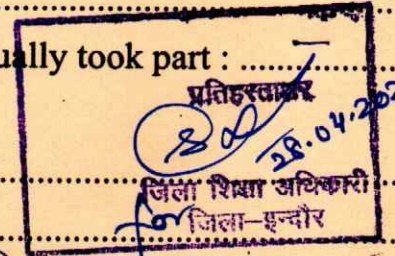 ually took part :
प्रतिहस्ताक्षर
28.04.202
जिला शिक्षा अधिकारी
for जिला-इन्दौर